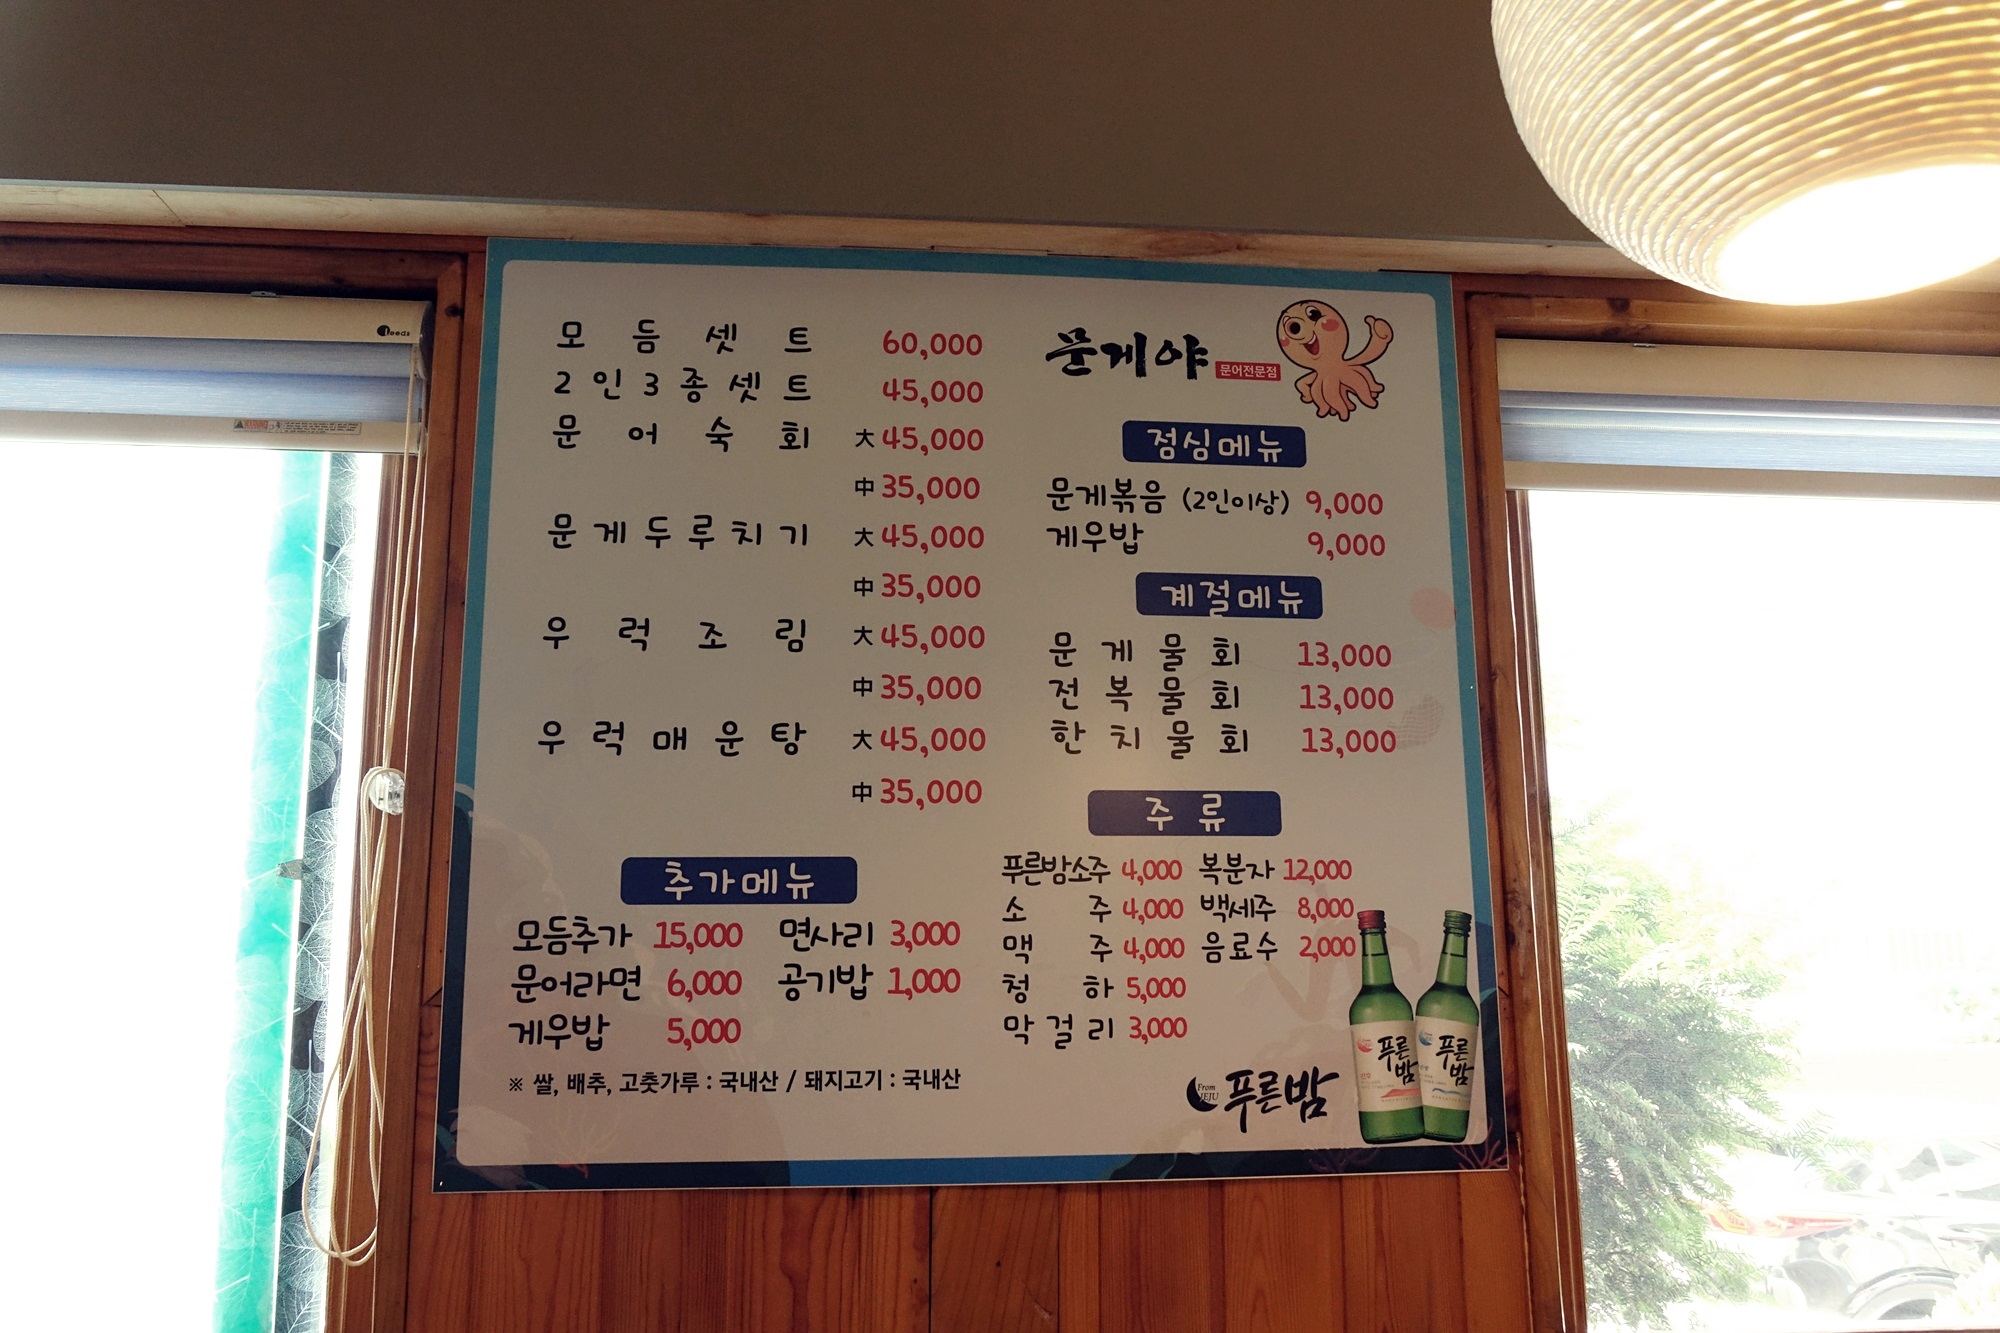 모듬셋트 60,000
2인3종셋트 45,000
문어숙회 大 45,000
中 35,000
문게두루치기 大 45,000
中 35,000
우럭조림 大 45,000
中 35,000
우럭매운탕 大 45,000
中 35,000
추가메뉴
모듬추가 15,000 면사리 3,000
문어라면 6,000 공기밥 1,000
게우밥 5,000
※ 쌀, 배추, 고춧가루 : 국내산 / 돼지고기 : 국내산
문게야 문어전문점
점심메뉴
문게볶음 (2인이상) 9,000
게우밥 9,000
계절메뉴
문게물회 13,000
전복물회 13,000
한치물회 13,000
주류
푸른밤소주 4,000 복분자 12,000
소주 4,000 백세주 8,000
맥주 4,000 음료수 2,000
청하 5,000
막걸리 3,000
From JEJU 푸른밤
푸른밤
푸른밤
WARNING